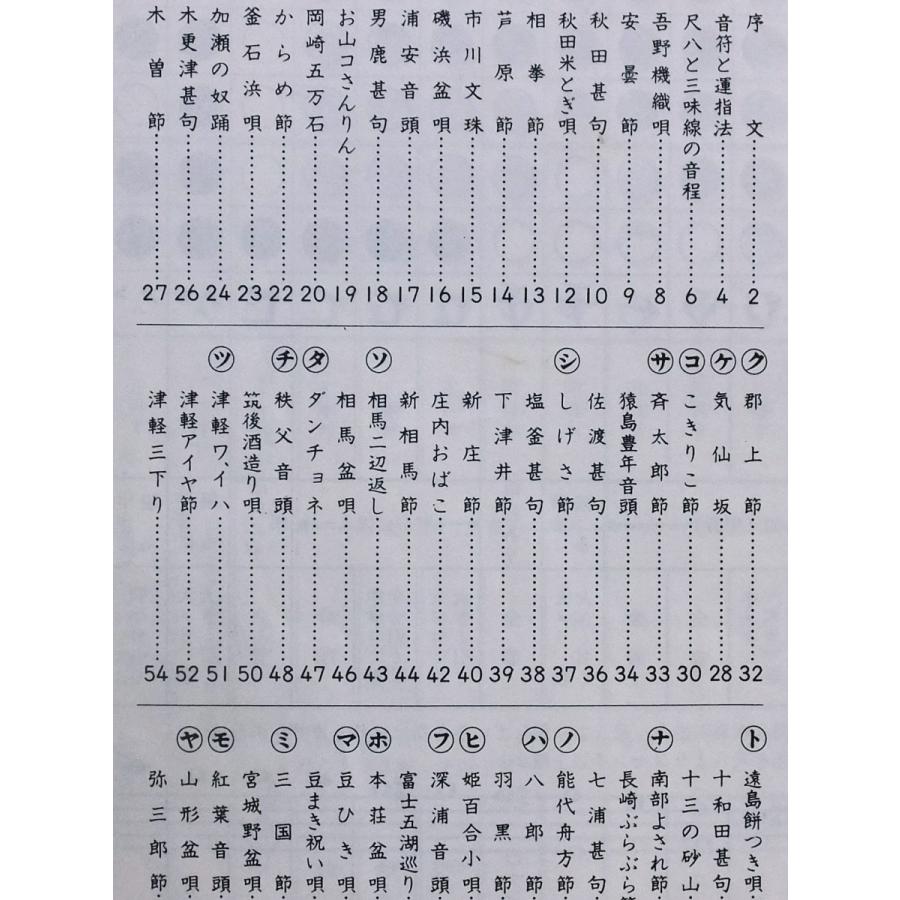 序文 2
音符と運指法 4
尺八と三味線の音程 6
吾野機織唄 8
安曇節 9
秋田甚句 10
秋田米とぎ唄 12
相拳節 13
芦原節 14
市川文珠 15
磯浜盆唄 16
浦安音頭 17
男鹿甚句 18
お山コさんりん 19
岡崎五万石 20
からめ節 22
釜石浜唄 23
加瀬の奴踊 24
木更津甚句 26
木曽節 27
ク 郡上節 32
ケ 気仙坂 28
コ こきりこ節 30
サ 斉太郎節 33
猿島豊年音頭 34
佐渡甚句 36
シ しげさ節 37
塩釜甚句 38
下津井節 39
新庄節 40
庄内おばこ 42
新相馬節 44
ソ 相馬二辺返し 43
相馬盆唄 46
タ ダンチョネ 47
チ 秩父音頭 48
筑後酒造り唄 50
ツ 津軽ワ、イハ 51
津軽アイヤ節 52
津軽三下り 54
ト 遠島餅つき唄
十和田甚句
十三の砂山
ナ 南部よされ節
長崎ぶらぶら節
七浦甚句
ノ 能代舟方節
ハ 八郎節
羽黒節
ヒ 姫百合小唄
フ 深浦音頭
富士五湖巡り
ホ 本荘盆唄
マ 豆ひき唄
豆まき祝い唄
ミ 三国節
宮城野盆唄
モ 紅葉音頭
ヤ 山形盆唄
弥三郎節